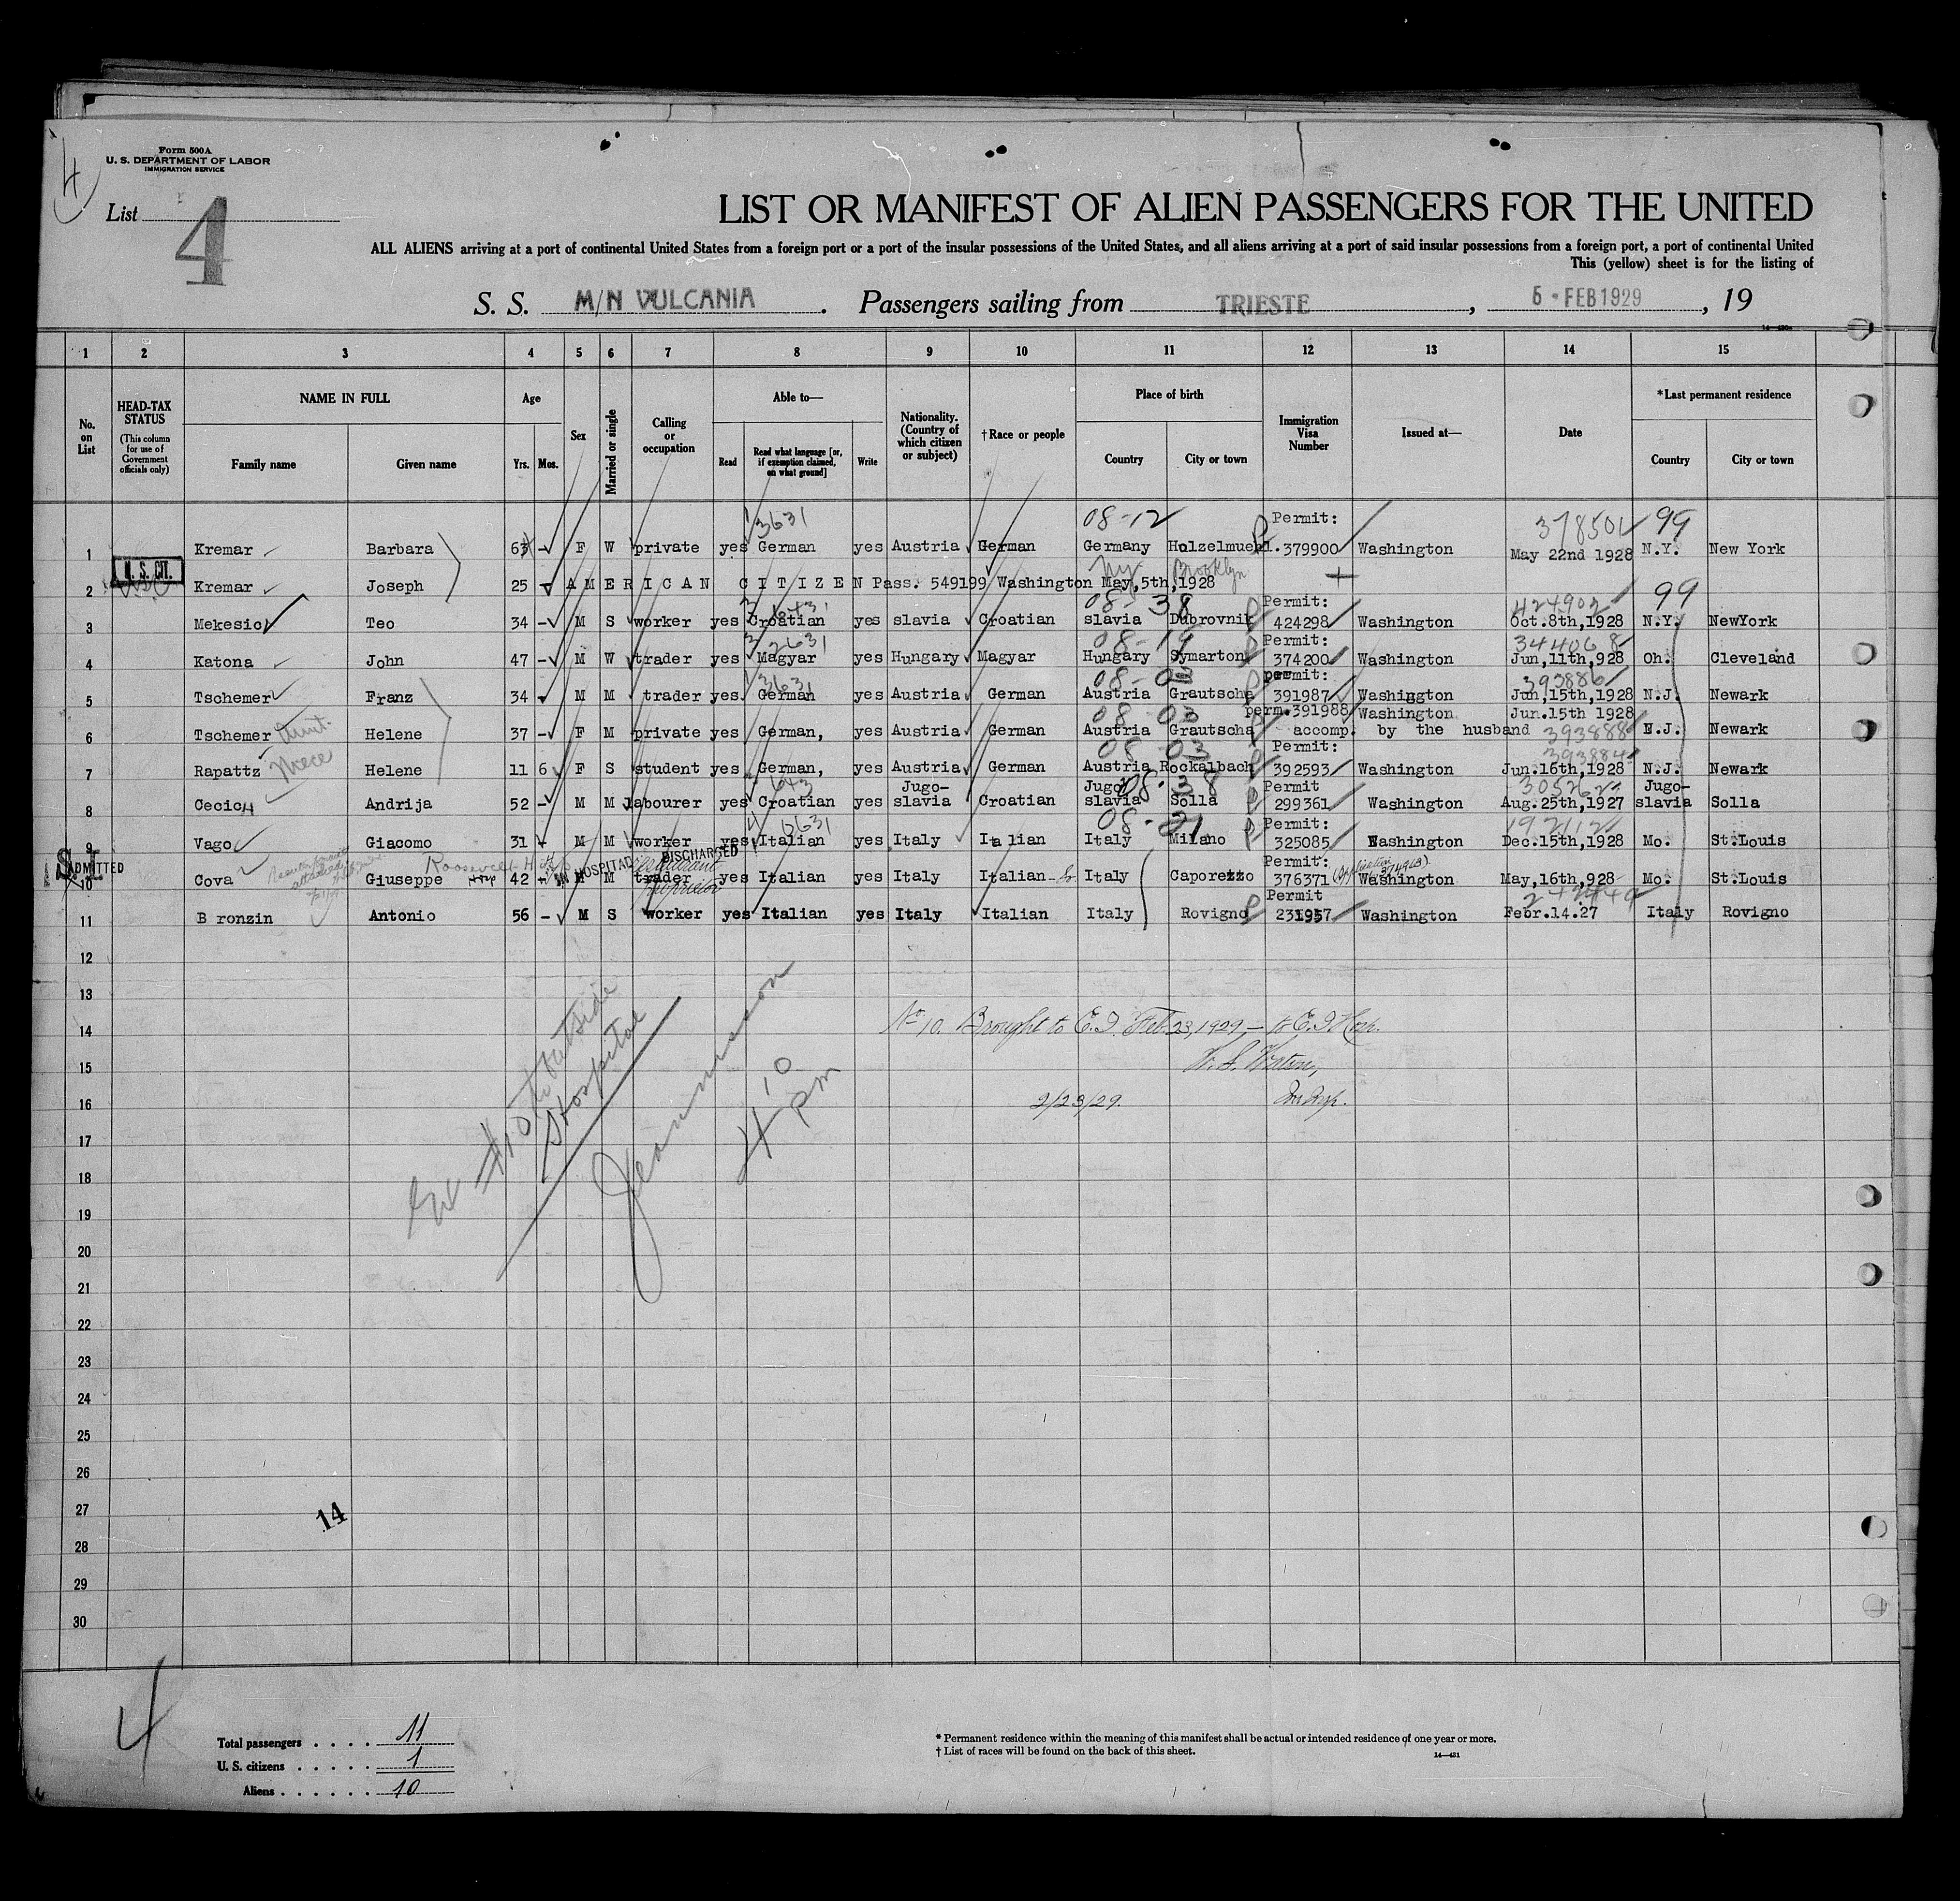 4
Form 500A
U. S. DEPARTMENT OF LABOR
IMMIGRATION SERVICE
List 4
LIST OR MANIFEST OF ALIEN PASSENGERS FOR THE UNITED
ALL ALIENS arriving at a port of continental United States from a foreign port or a port of the insular possessions of the United States, and all aliens arriving at a port of said insular possessions from a foreign port, a port of continental United
This (yellow) sheet is for the listing of
S. S. M/N VULCANIA. Passengers sailing from TRIESTE, 5 - FEB 1929, 19
1 2 3 4 5 6 7 8 9 10 11 12 13 14 15
No. on List
HEAD-TAX STATUS (This column for use of Government officials only)
NAME IN FULL Family name Given name
Age Yrs. Mos.
Sex
Married or single
Calling or occupation
Able to— Read Read what language [or, if exemption claimed, on what ground] Write
Nationality. (Country of which citizen or subject)
† Race or people
Place of birth Country City or town
Immigration Visa Number
Issued at—
Date
*Last permanent residence Country City or town
3631 08-12 Permit: 378501 99
1 Kremar Barbara 63 - F W private yes German yes Austria German Germany Holzelmuehl. 379900 Washington May 22nd 1928 N.Y. New York
U. S. CIT. NY Brooklyn
2 Kremar Joseph 25 - AMERICAN CITIZEN Pass. 549199 Washington May,5th,1928
08-38 Permit: 424902 99
3 Mekesic Teo 34 - M S worker yes Croatian yes slavia Croatian slavia Dubrovnik 424298 Washington Oct.8th,1928 N.Y. NewYork
2631 08-19 Permit: 344068
4 Katona John 47 - M W trader yes Magyar yes Hungary Magyar Hungary Symarton 374200 Washington Jun,11th,928 Oh. Cleveland
3631 08-03 permit: 393886
5 Tschemer Franz 34 - M M trader yes. German yes Austria German Austria Grautscha 391987 Washington Jun,15th,1928 N.J. Newark
08 03 perm.391988 Washington Jun.15th 1928
6 Tschemer Aunt. Helene 37 - F M private yes German, yes Austria German Austria Grautscha accomp. by the husband 393888 N.J. Newark
08 03 Permit: 393884
7 Rapattz Niece Helene 11 6 F S student yes German, yes Austria German Austria Rockalbach 392593 Washington Jun.16th,1928 N.J. Newark
643 Jugo- Jugo 08-38 Permit 305262 Jugo-
8 Cecich Andrija 52 - M M labourer yes Croatian yes slavia Croatian slavia Solla 299361 Washington Aug.25th,1927 slavia Solla
0631 08-21 Permit: 192112
9 Vago Giacomo 31 - M M worker yes Italian yes Italy Italian Italy Milano 325085 Washington Dec.15th,1928 Mo. St.Louis
S.I. ADMITTED Roosevelt IN HOSPITAL DISCHARGED Permit:
10 Cova Giuseppe 42 M M trader yes Italian yes Italy Italian- Italy Caporezzo 376371 Washington May,16th,928 Mo. St.Louis
Permit
11 B ronzin Antonio 56 - M S worker yes Italian yes Italy Italian Italy Rovigno 231957 Washington Febr.14.27 Italy Rovigno
12
13
14 No 10. Brought to E.I. Feb. 23, 1929, - to E I Hosp.
15
16 2/23/29.
#10 to outside
Hospital
4 10
pm
17
18
19
20
21
22
23
24
25
26
27
14
28
29
30
4
Total passengers . . . . 11
U. S. citizens . . . . . 1
Aliens . . . . . . 10
* Permanent residence within the meaning of this manifest shall be actual or intended residence of one year or more.
† List of races will be found on the back of this sheet.
14—431